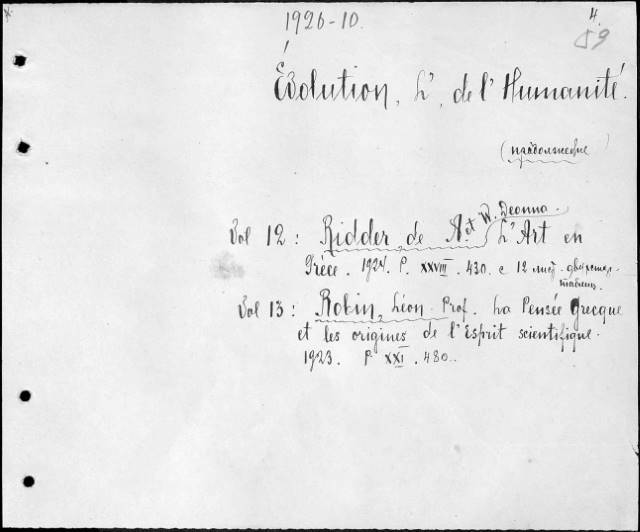 *
1926-10.
4.
59
Évolution, L', de l'Humanité.
(продолжение)
Vol 12: Ridder, de A. et W. Deonna. L'Art en
Grèce. 1924. P. XXVIII. 430. с 12 лист.
таблиц.
Vol 13: Robin, Léon Prof. La Pensée Grecque
et les origines de l'Esprit scientifique.
1923. P XXI. 480.